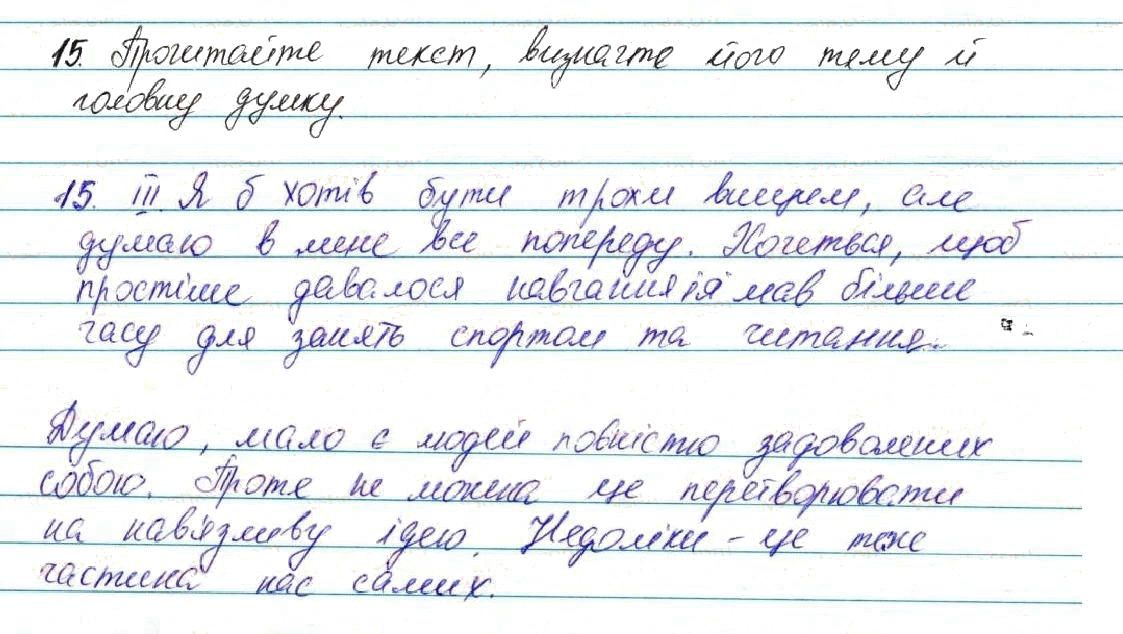 15. Прочитайте текст, визначте його тему й
головну думку.
15. III. Я б хотів бути трохи вищим, але
думаю в мене все попереду. Хочеться, щоб
простіше давалося навчання і я мав більше
часу для занять спортом та читання.
Думаю, мало є людей повністю задоволених
собою. Проте не можна це перетворювати
на нав'язливу ідею. Недоліки – це теж
частина нас самих.